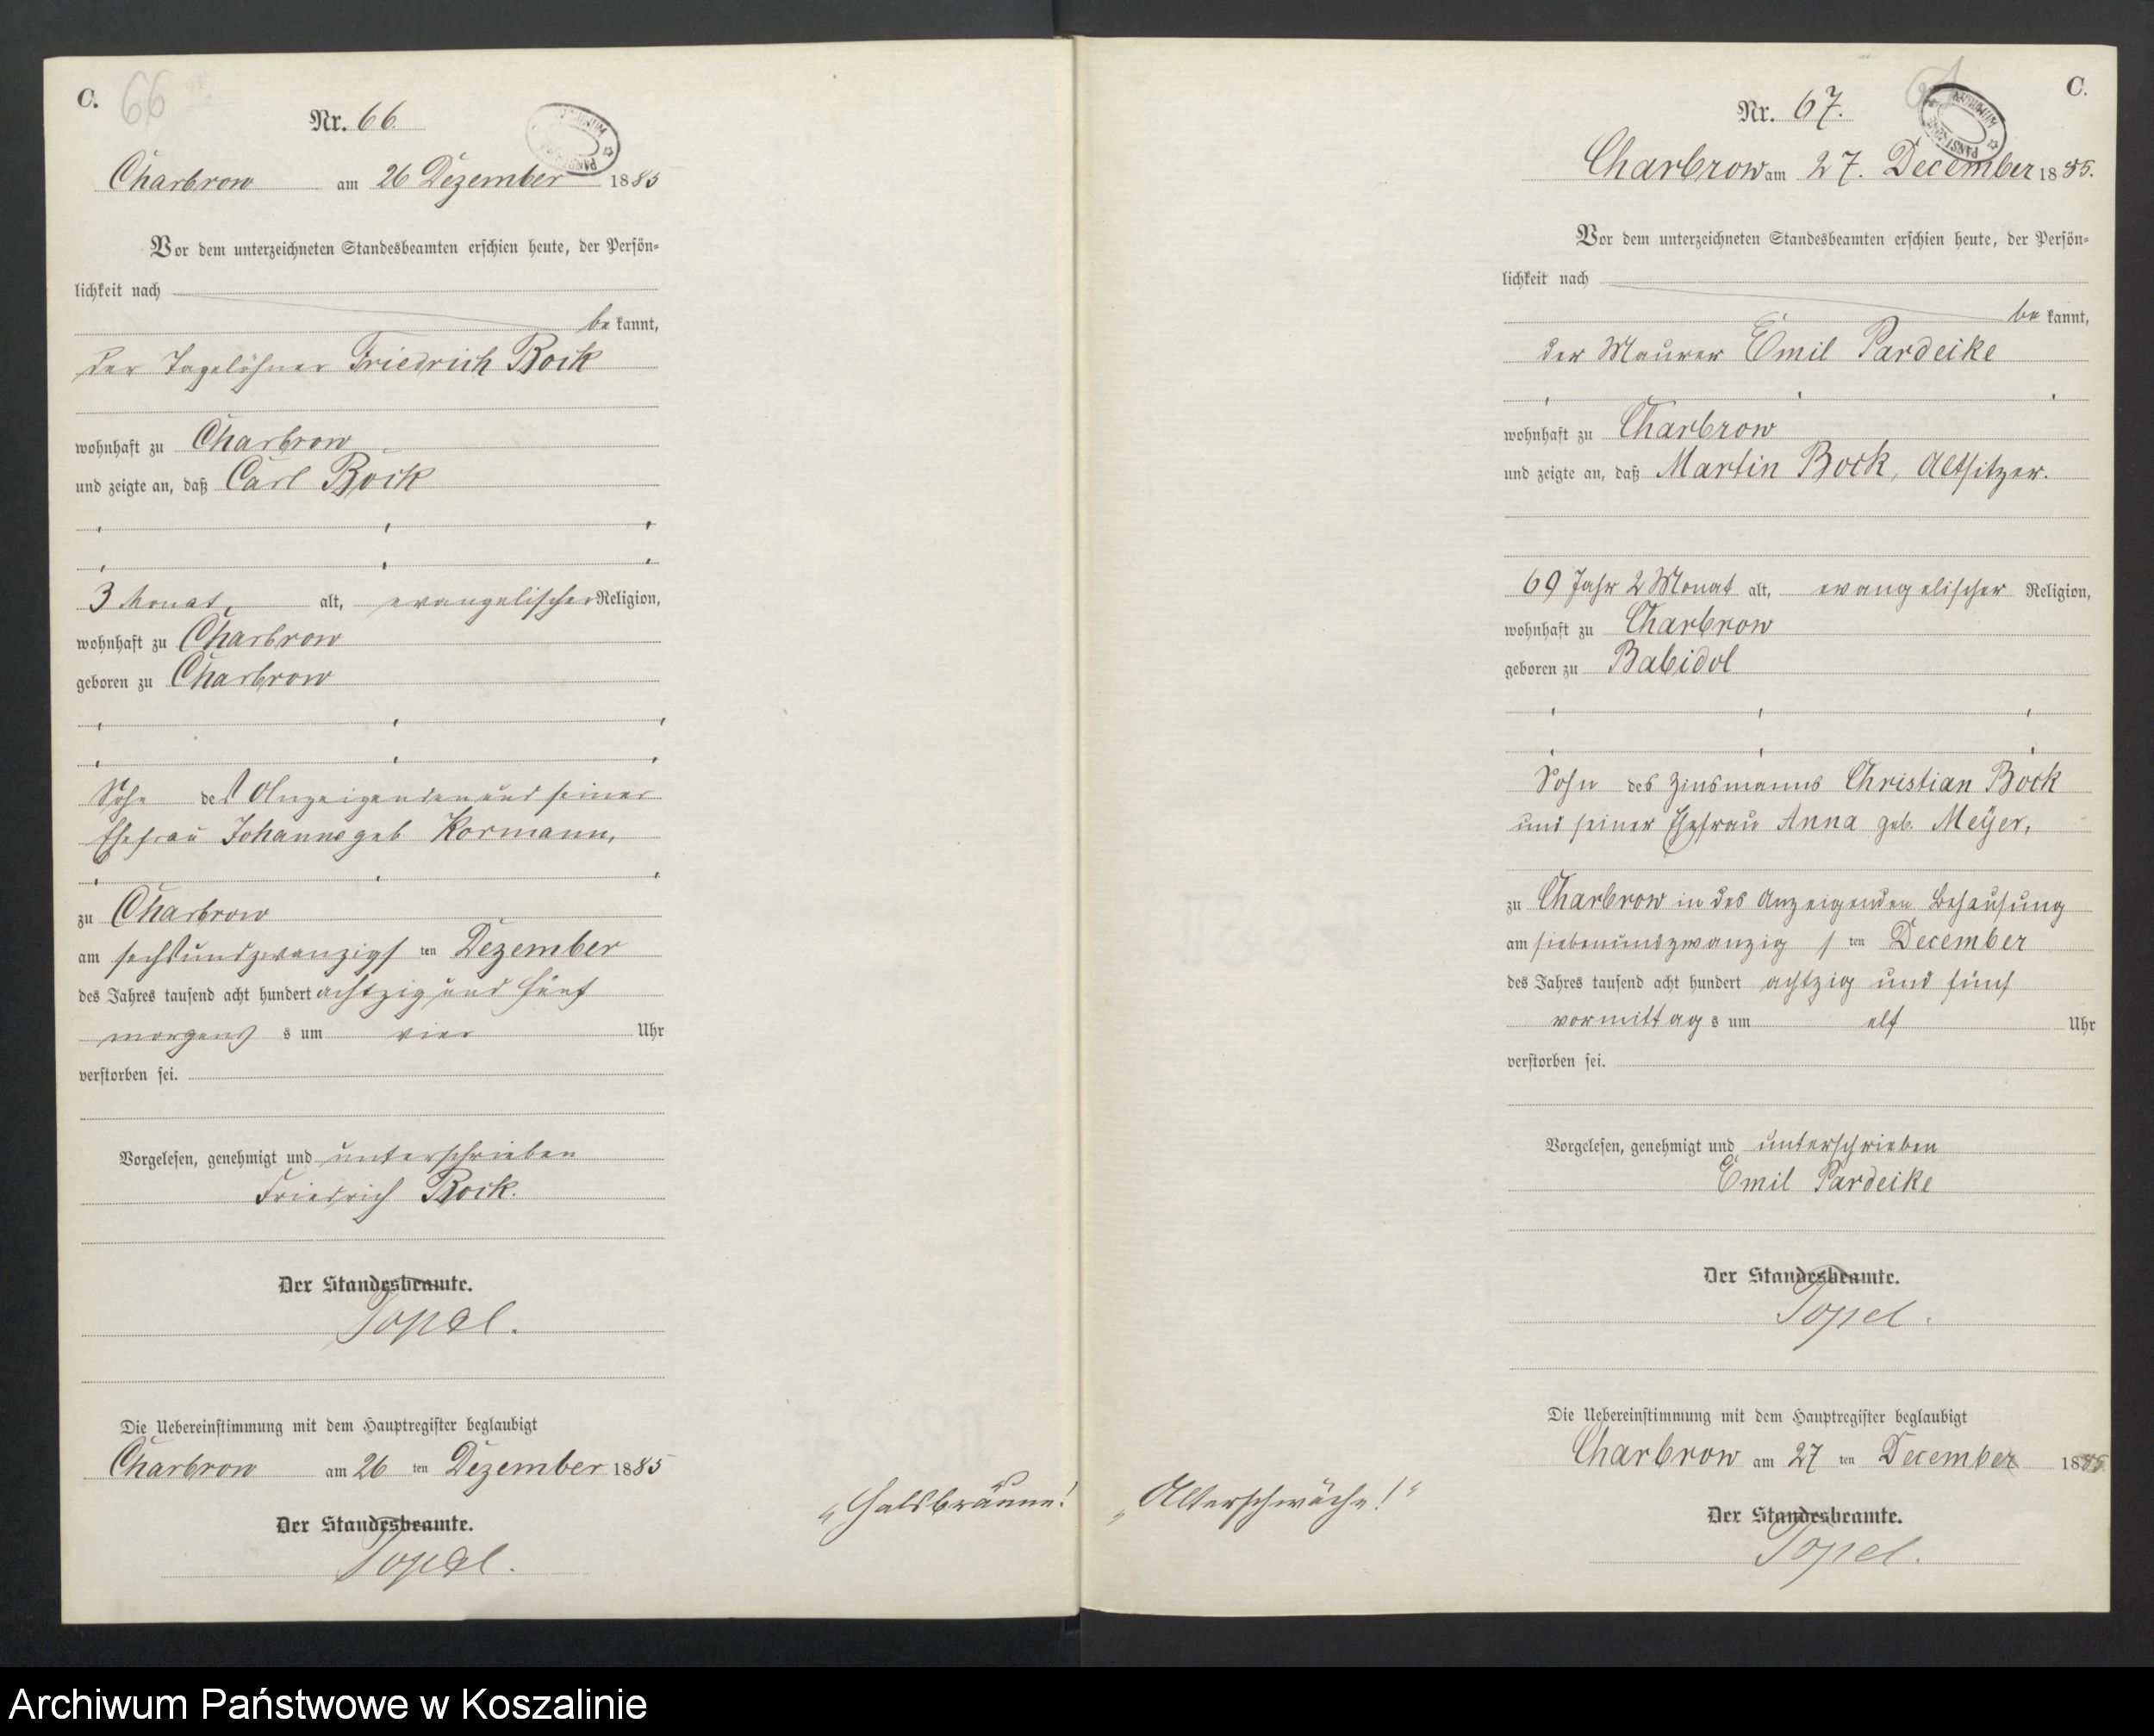 C. 66
Nr. 66.
Charbrow am 26 Dezember 1885
Vor dem unterzeichneten Standesbeamten erschien heute, der Persön-
lichkeit nach
be kannt,
der Tagelöhner Friedrich Bock
wohnhaft zu Charbrow
und zeigte an, daß Carl Bock
3 Monat, alt, evangelischer Religion,
wohnhaft zu Charbrow
geboren zu Charbrow
Sohn des Anzeigenden und seiner
Ehefrau Johanne geb Kormann,
zu Charbrow
am sechsundzwanzigs ten Dezember
des Jahres tausend acht hundert achtzig und fünf
morgens s um vier Uhr
verstorben sei.
Vorgelesen, genehmigt und unterschrieben
Friedrich Bock.
Der Standesbeamte.
Topel.
Die Uebereinstimmung mit dem Hauptregister beglaubigt
Charbrow am 26 ten Dezember 1885
Der Standesbeamte.
Topel.
„Halsbräune!
C.
Nr. 67.
Charbrow am 27. December 1885.
Vor dem unterzeichneten Standesbeamten erschien heute, der Persön-
lichkeit nach
be kannt,
der Maurer Emil Pardeike
wohnhaft zu Charbrow
und zeigte an, daß Martin Bock, Altsitzer.
69 Jahr 2 Monat alt, evangelischer Religion,
wohnhaft zu Charbrow
geboren zu Babidol
Sohn des Zinsmanns Christian Bock
und seiner Ehefrau Anna geb. Meÿer,
zu Charbrow in des Anzeigenden Behausung
am siebenundzwanzig s ten December
des Jahres tausend acht hundert achtzig und fünf
vormittag s um elf Uhr
verstorben sei.
Vorgelesen, genehmigt und unterschrieben
Emil Pardeike
Der Standesbeamte.
Topel.
Die Uebereinstimmung mit dem Hauptregister beglaubigt
Charbrow am 27 ten December 1885.
Der Standesbeamte.
Topel.
„Alterschwäche!“
Archiwum Państwowe w Koszalinie